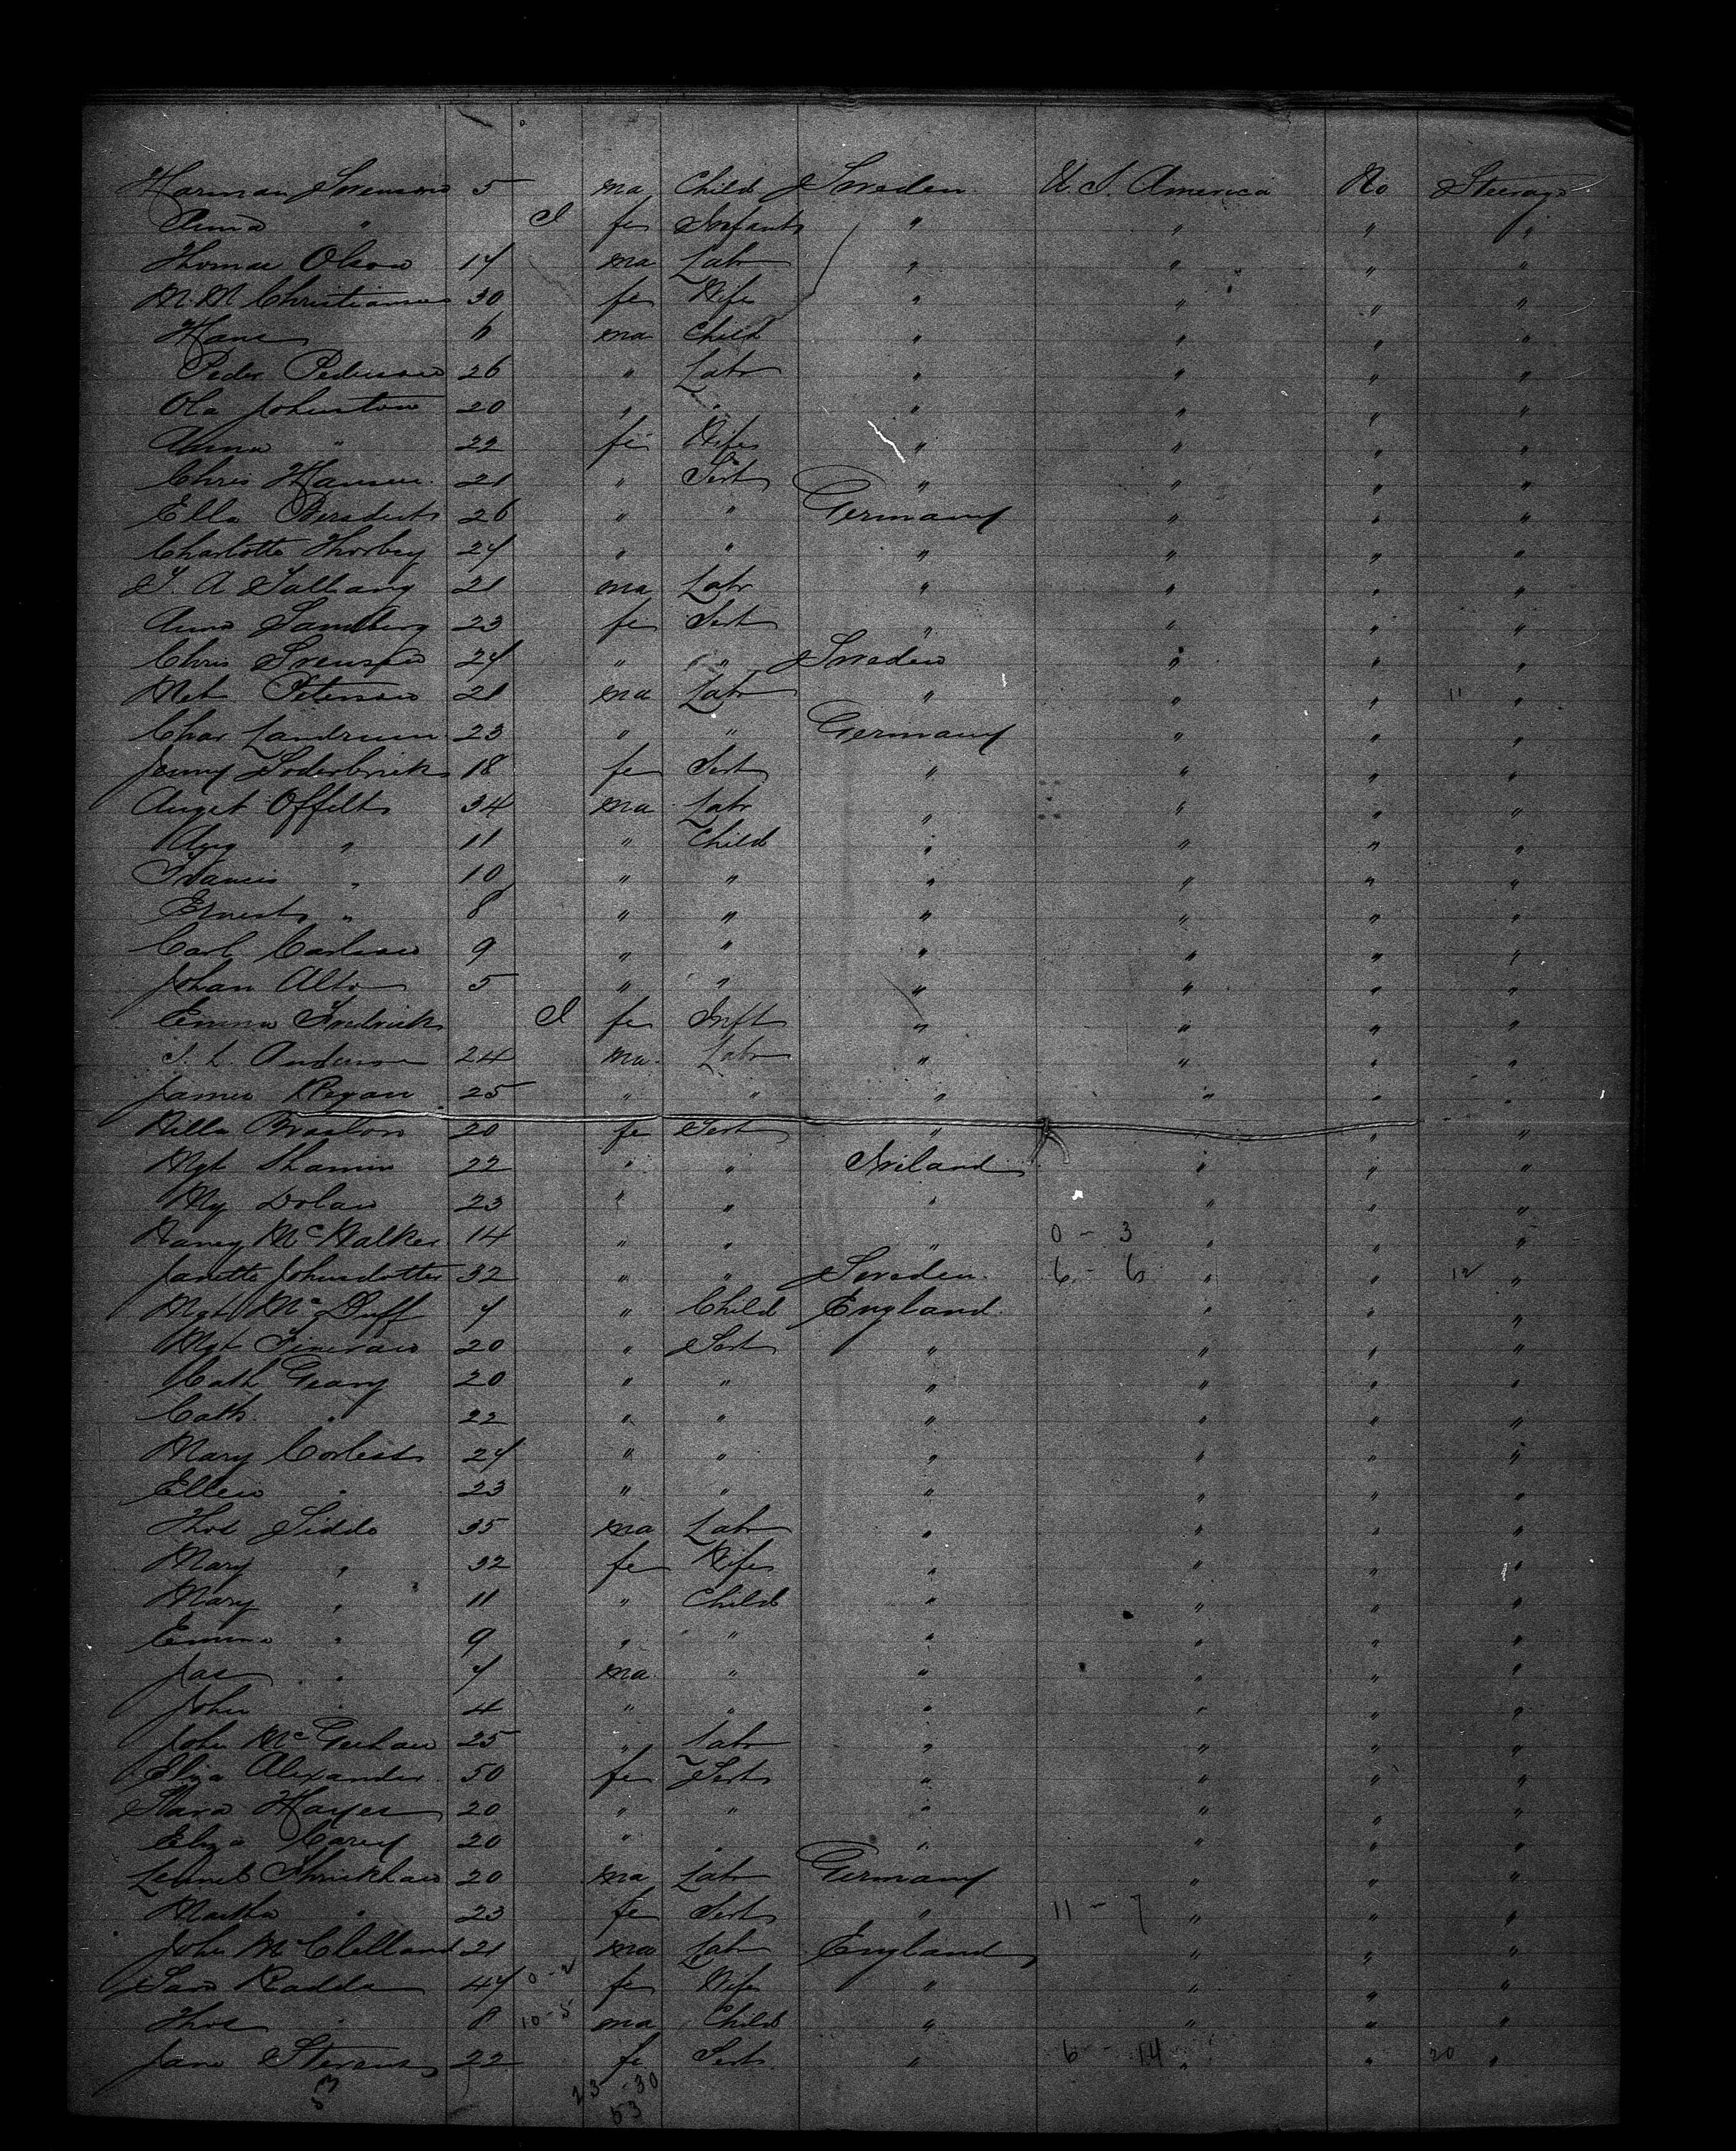 Herman Svenson 5 ma Child Sweden U.S. America No Steerage
Anna " I fe Infant " " " "
Thomas Olson 17 ma Labr " " " "
M. M Christiansen 30 fe Wife " " " "
Hans 6 ma Child " " " "
Peder Pederson 26 " Labr " " " "
Ola Johnston 20 " " " " " "
Anna " 22 fe Wife " " " "
Chris Hansen 21 " Sert " " " "
Ella 26 " " Germany " " "
Charlotte Thorbey 27 " " " " " "
A 21 ma Labr " " " "
Anna Sandberg 23 fe Sert " " " "
Chris Svenson 27 " " Sweden " " "
Met Peterson 21 ma Labr " " " 11 "
Char Landrum 23 " " Germany " " "
Jenny Soderbrick 18 fe Sert " " " "
August Offelt 34 ma Labr " " " "
Aug " 11 " Child " " " "
Francis " 10 " " " " " "
Ernest " 8 " " " " " "
Carl Carlson 9 " " " " " "
Johan Alto 5 " " " " " "
Emma Fredrick I fe Inft " " " "
L. Anderson 24 ma Labr " " " "
James Ryan 25 " " " " " "
20 fe Sert " " " "
Mgt 22 " " Ireland " " "
My Dolan 23 " " " " " "
Nancy McWalker 14 " " " 0 - 3 " " "
Janette Johnsdotter 32 " " Sweden 6 - 6 " " 12 "
Mgt McDuff 7 " Child England " " "
Mgt Fineran 20 " Sert " " " "
Cath Geary 20 " " " " " "
Cath " 22 " " " " " "
Mary Corless 27 " " " " " "
Ellen " 23 " " " " " "
Thos Siddo 35 ma Labr " " " "
Mary " 32 fe Wife " " " "
Mary " 11 " Child " " " "
Emma " 9 " " " " " "
Jas " 7 ma " " " " "
John " 4 " " " " " "
John McGeehan 25 " Labr " " " "
Eliza Alexander 50 fe Sert " " " "
Sara Hayes 20 " " " " " "
Eliza Carey 20 " " " " " "
20 ma Labr Germany " " "
Martha " 23 fe Sert " 11 - 7 " " "
John McClelland 21 ma Labr England " " "
Sara Radda 47 0 - 2 fe Wife " " " "
Thos " 8 10 - 5 ma Child " " " "
Jane Stevens 22 fe Sert " 6 - 14 " " 20 "
23 - 30
53